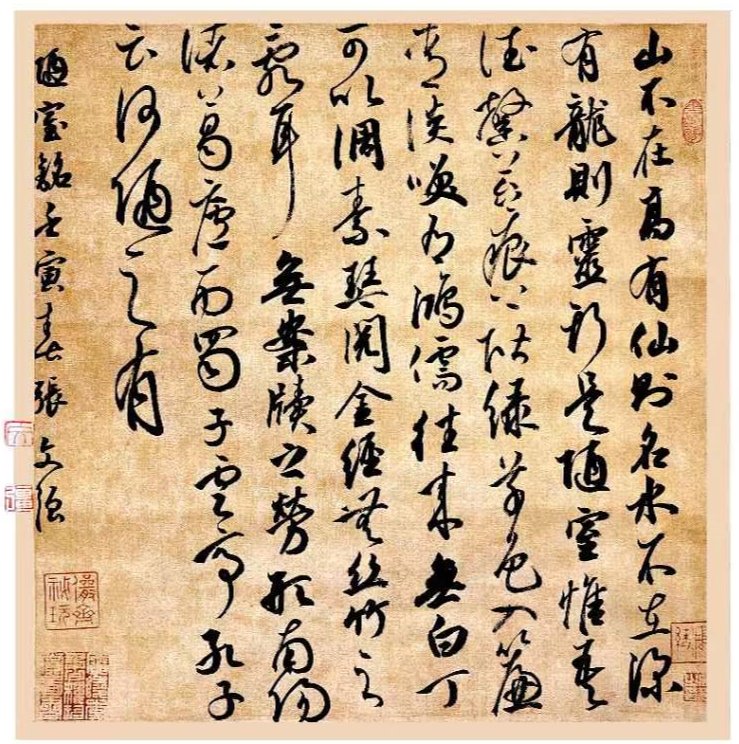 山不在高有仙則名水不在深
有龍則靈斯是陋室惟吾
德馨苔痕上階綠草色入簾
青談笑有鴻儒往來無白丁
可以調素琴閱金經無絲竹之
亂耳無案牘之勞形南陽
諸葛廬西蜀子雲亭孔子
云何陋之有
陋室銘壬寅春張文強
儼齋秘玩